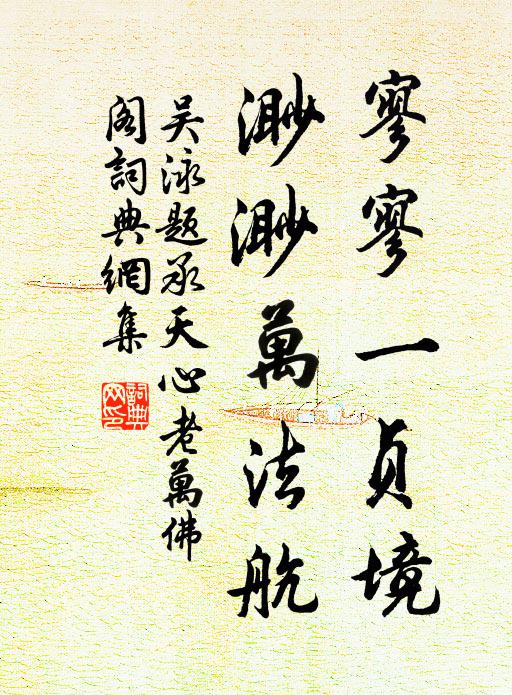 寥寥一貞境
渺渺萬法航
吴泳題承天心老萬佛
阁詞典網集
詞典
网印